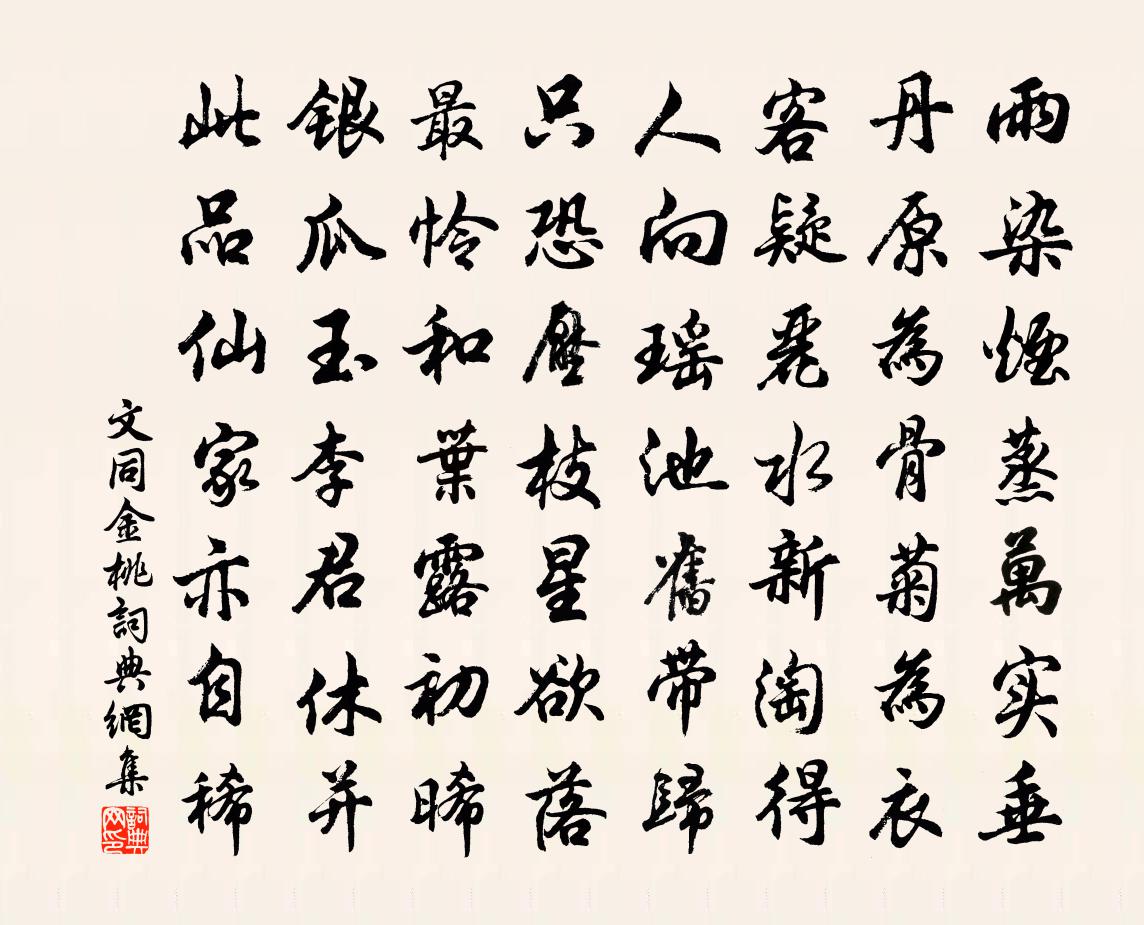 雨染煙蒸萬实垂
丹原為骨菊為衣
客疑麗水新淘得
人向瑶池舊带歸
只恐壓枝星欲落
最怜和葉露初晞
銀瓜玉李君休并
此品仙家亦自稀
文同金桃詞典網集
詞典网印